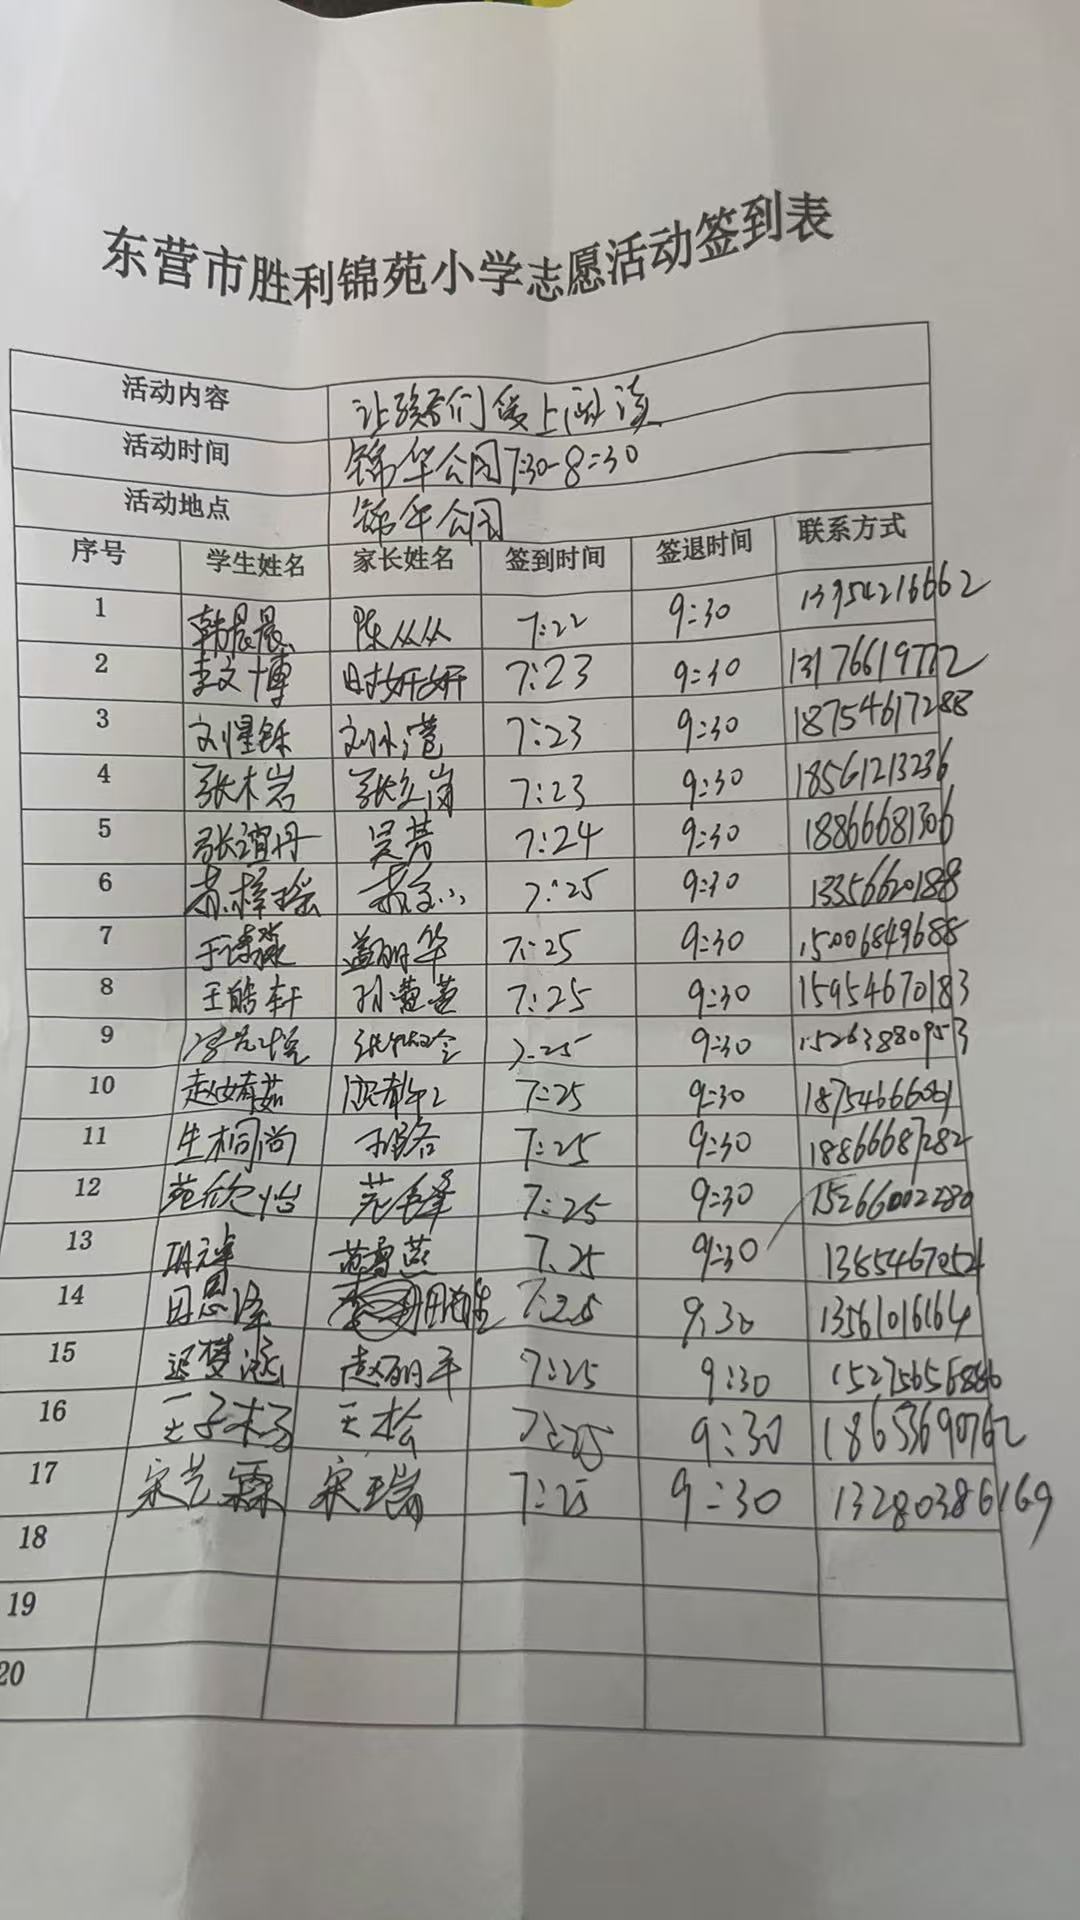 东营市胜利锦苑小学志愿活动签到表
活动内容 让孩子们爱上阅读
活动时间 锦华公园7:30-8:30
活动地点 锦华公园
序号 学生姓名 家长姓名 签到时间 签退时间 联系方式
1 韩晨晨 陈从从 7:22 9:30 13954216662
2 李文博 时妍妍 7:23 9:30 13176619772
3 刘惺铄 刘小萱 7:23 9:30 18754617288
4 张木岩 张立岗 7:23 9:30 18561213236
5 张谊丹 吴芳 7:24 9:30 18866681306
6 苏梓瑶 7:25 9:30 13356620188
7 盖丽华 7:25 9:30 15006849688
8 王皓轩 孙董董 7:25 9:30 15954670183
9 7:25 9:30 15263880953
10 赵婧茹 7:25 9:30 18754666061
11 生桐尚 7:25 9:30 18866687282
12 苑欣怡 苑手峰 7:25 9:30 15266002280
13 苏雪燕 7.25 9:30
14 田恩泽 7:25 9:30 13561016164
15 迟梦涵 赵丽平 7:25 9:30
16 王子杨 王松 7:25 9:30 18653690762
17 宋艺霖 宋瑞 7:25 9:30 13280386169
18
19
20